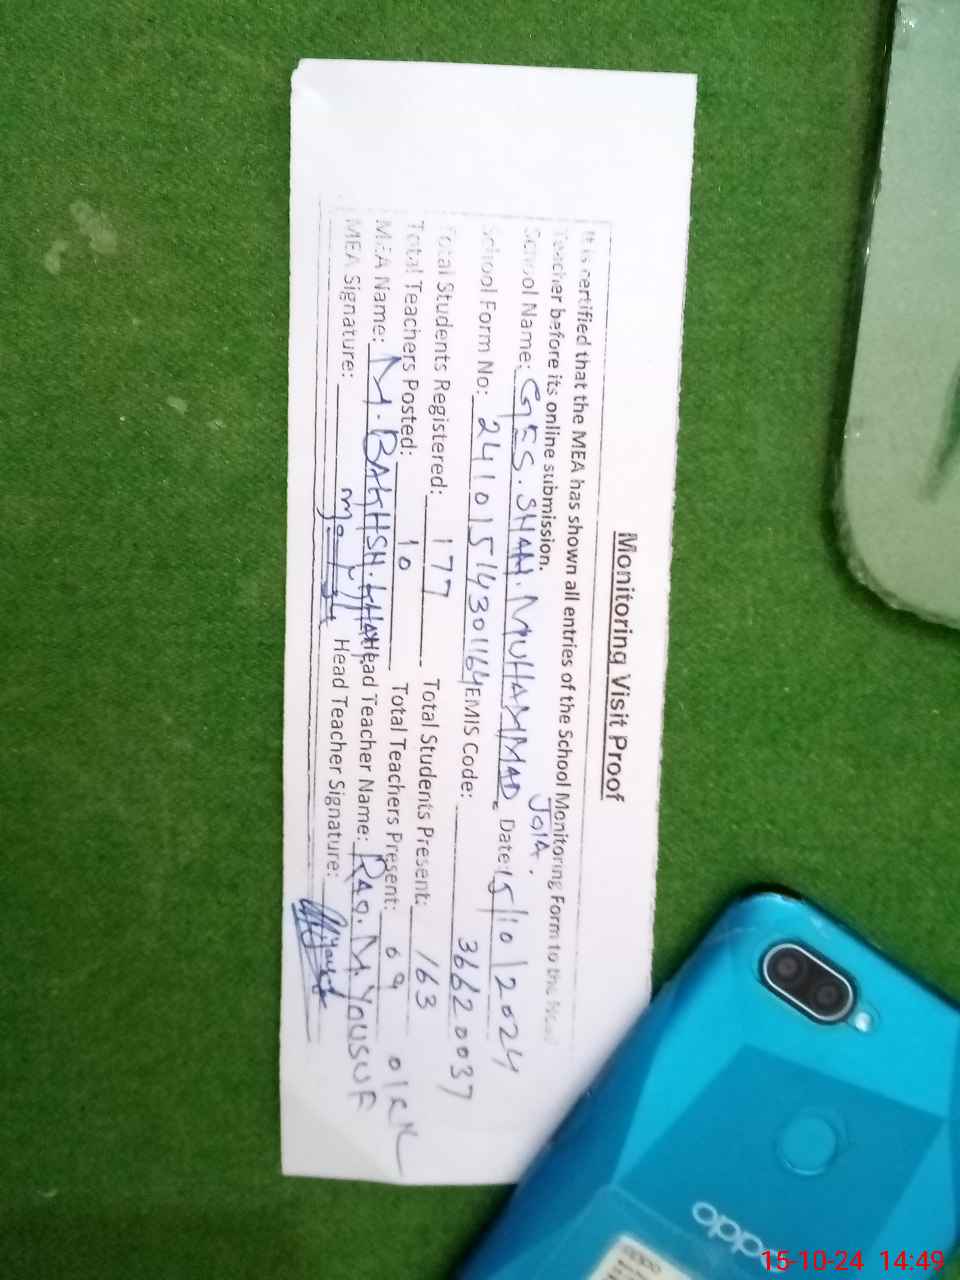 Monitoring Visit Proof
It is certified that the MEA has shown all entries of the School Monitoring Form to the Head
Teacher before its online submission.
School Name: GES. SHAH. MUHAMMAD JOIA. Date: 15/10/2024
School Form No: 24101514301164 EMIS Code: 36620037
Total Students Registered: 177 Total Students Present: 163
Total Teachers Posted: 10 Total Teachers Present: 09
MEA Name: M. BAKHSH. Head Teacher Name: RAO. M. YOUSUF
MEA Signature: Head Teacher Signature:
oppo
15-10-24 14:49